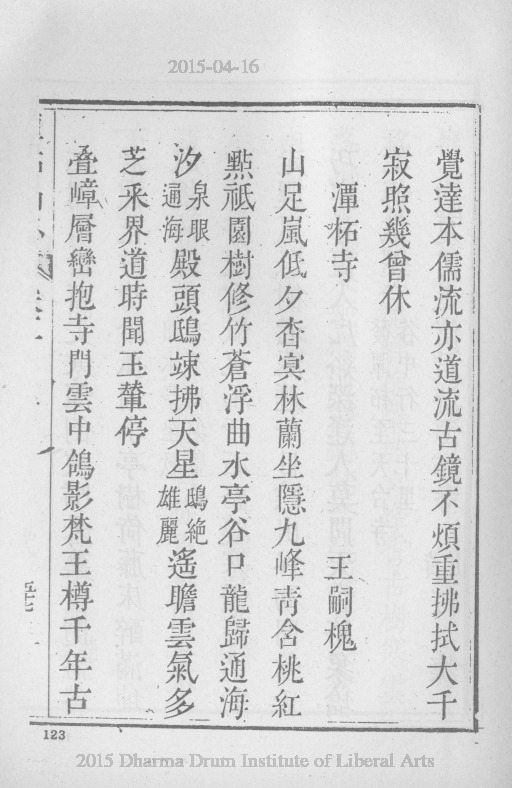 2015-04-16
覺達本儒流亦道流古鏡不煩重拂拭大千
寂照幾曾休
潭柘寺 王嗣槐
山足嵐低夕杳冥林蘭坐隱九峰靑含桃紅
㸃祗園樹修竹蒼浮曲水亭谷口龍歸通海
汐泉眼通海殿頭鴟竦拂天星鴟絶雄麗遙瞻雲氣多
芝釆界道時聞玉輦停
叠嶂層巒抱寺門雲中鴿影梵王樽千年古
五七
123
2015 Dharma Drum Institute of Liberal Arts